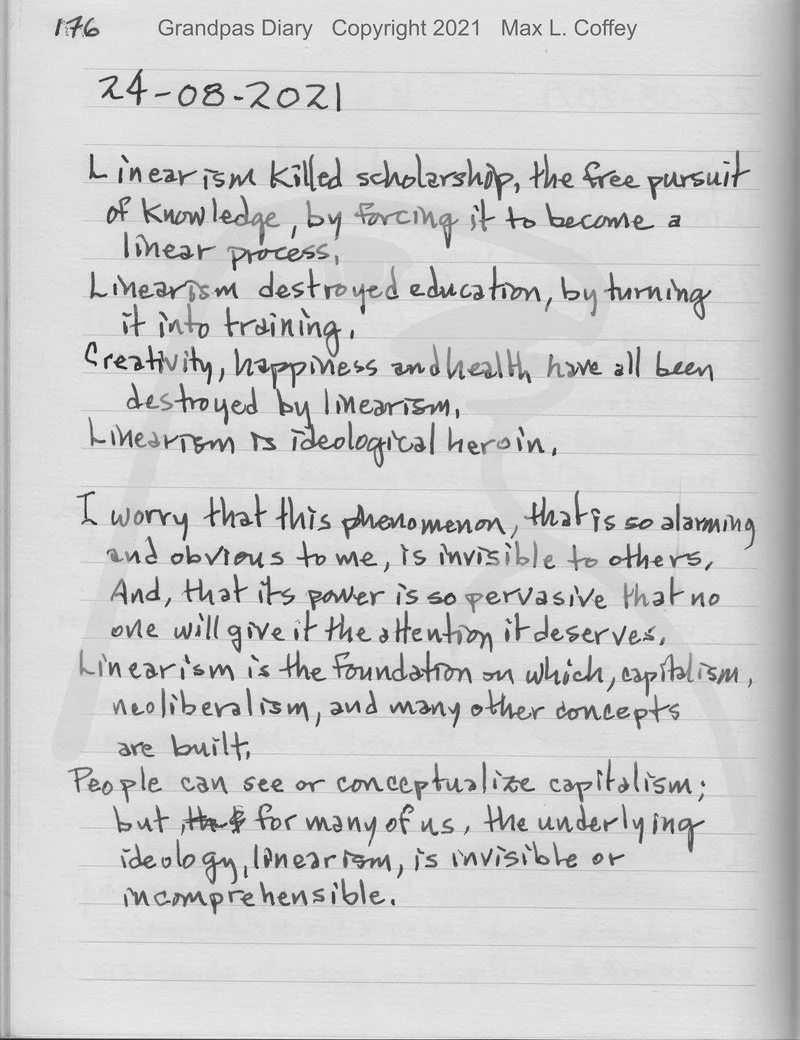 176 Grandpas Diary Copyright 2021 Max L. Coffey
24-08-2021
Linearism killed scholarship, the free pursuit
of knowledge, by forcing it to become a
linear process.
Linearism destroyed education, by turning
it into training.
Creativity, happiness and health have all been
destroyed by linearism.
Linearism is ideological heroin.
I worry that this phenomenon, that is so alarming
and obvious to me, is invisible to others.
And, that its power is so pervasive that no
one will give it the attention it deserves.
Linearism is the foundation on which, capitalism,
neoliberalism, and many other concepts
are built.
People can see or conceptualize capitalism;
but for many of us, the underlying
ideology, linearism, is invisible or
incomprehensible.